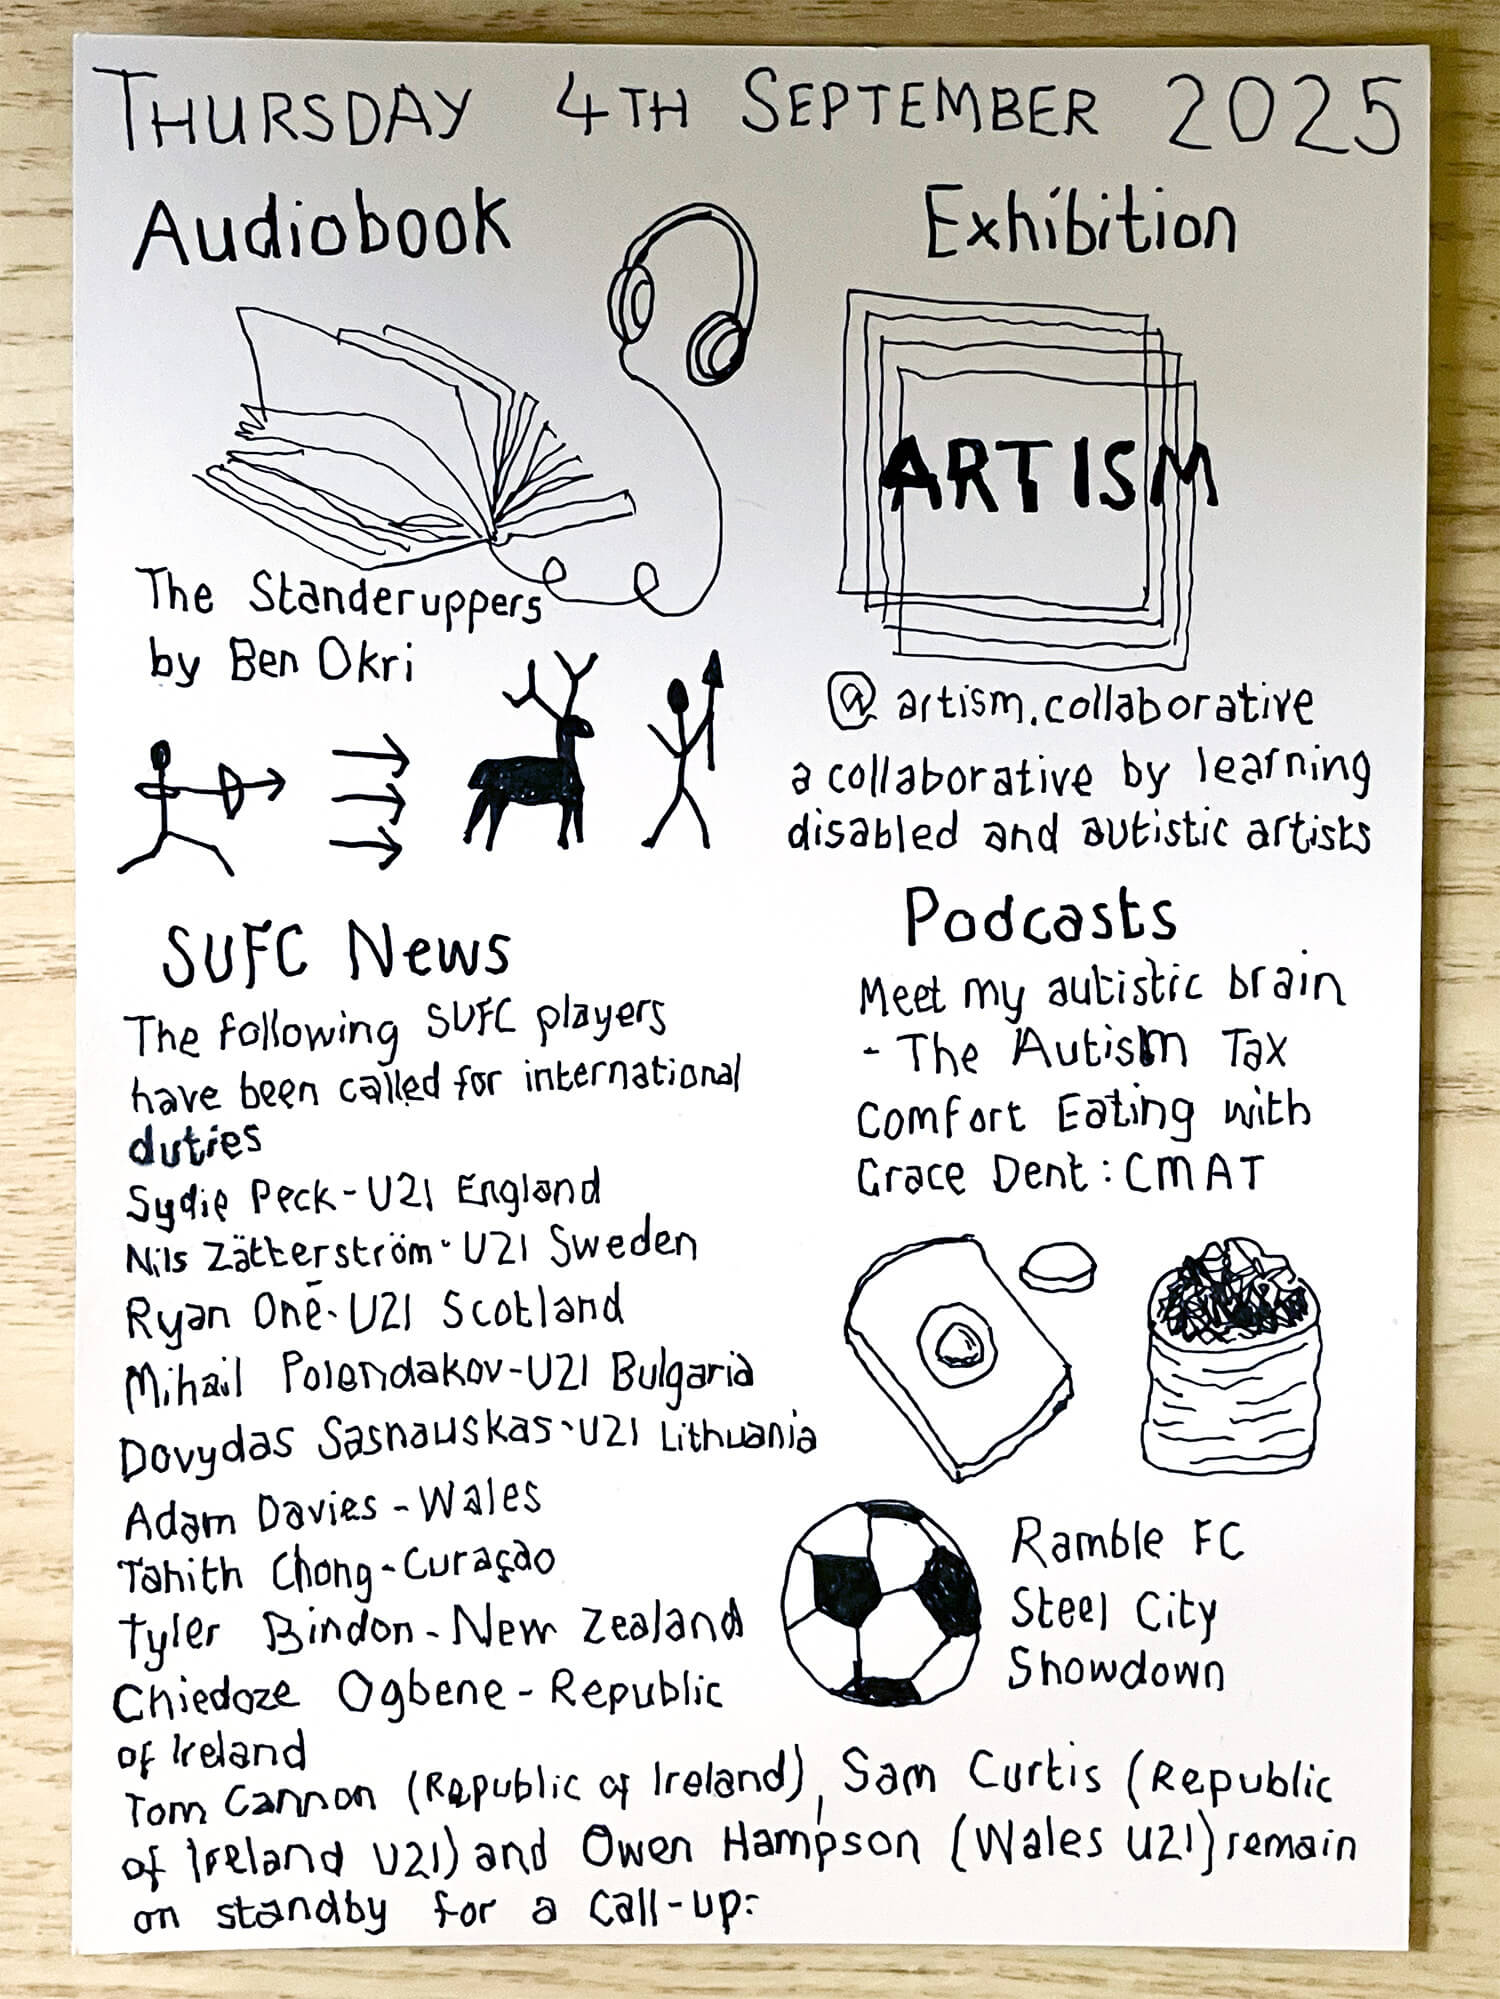 THURSDAY 4TH SEPTEMBER 2025
Audiobook
The Standeruppers
by Ben Okri
Exhibition
ARTISM
@artism.collaborative
a collaborative by learning
disabled and autistic artists
SUFC News
The following SUFC players
have been called for international
duties
Sydie Peck - U21 England
Nils Zätterström - U21 Sweden
Ryan Oné - U21 Scotland
Mihail Polendakov - U21 Bulgaria
Dovydas Sasnauskas - U21 Lithuania
Adam Davies - Wales
Tahith Chong - Curaçao
Tyler Bindon - New Zealand
Chiedoze Ogbene - Republic
of Ireland
Tom Cannon (Republic of Ireland), Sam Curtis (Republic
of Ireland U21) and Owen Hampson (Wales U21) remain
on standby for a call-up.
Podcasts
Meet my autistic brain
- The Autism Tax
Comfort Eating with
Grace Dent: CMAT
Ramble FC
Steel City
Showdown